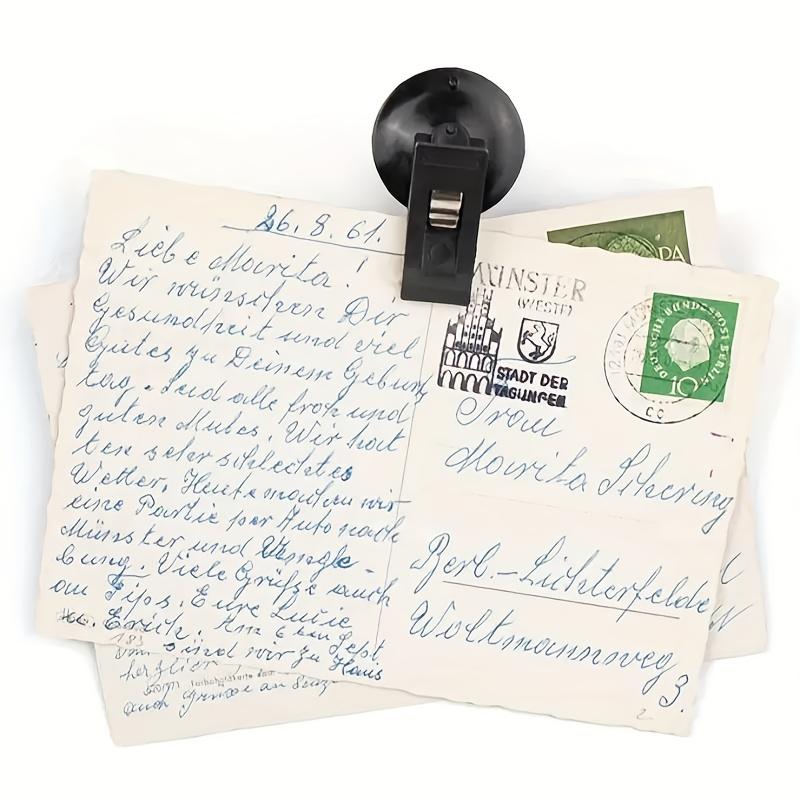 26. 8. 61.
Liebe Marita!
Wir wünschen Dir
Gesundheit und viel
Gutes zu Deinem Geburts
tag. Seid alle froh und
guten Mutes. Wir hat
ten sehr schlechtes
Wetter. Heute machen wir
eine Partie per Auto nach
Münster und
bung. Viele Grüße auch
an Eure Lucie
Erich.
sind wir zu Haus
MÜNSTER
(WESTF)
STADT DER
TAGUNGEN
DEUTSCHE BUNDESPOST BERLIN
10
cc
Frau
Marita
Berl.-Lichterfelde
Woltmannsweg
3.
183
herzlich
auch Grüsse an